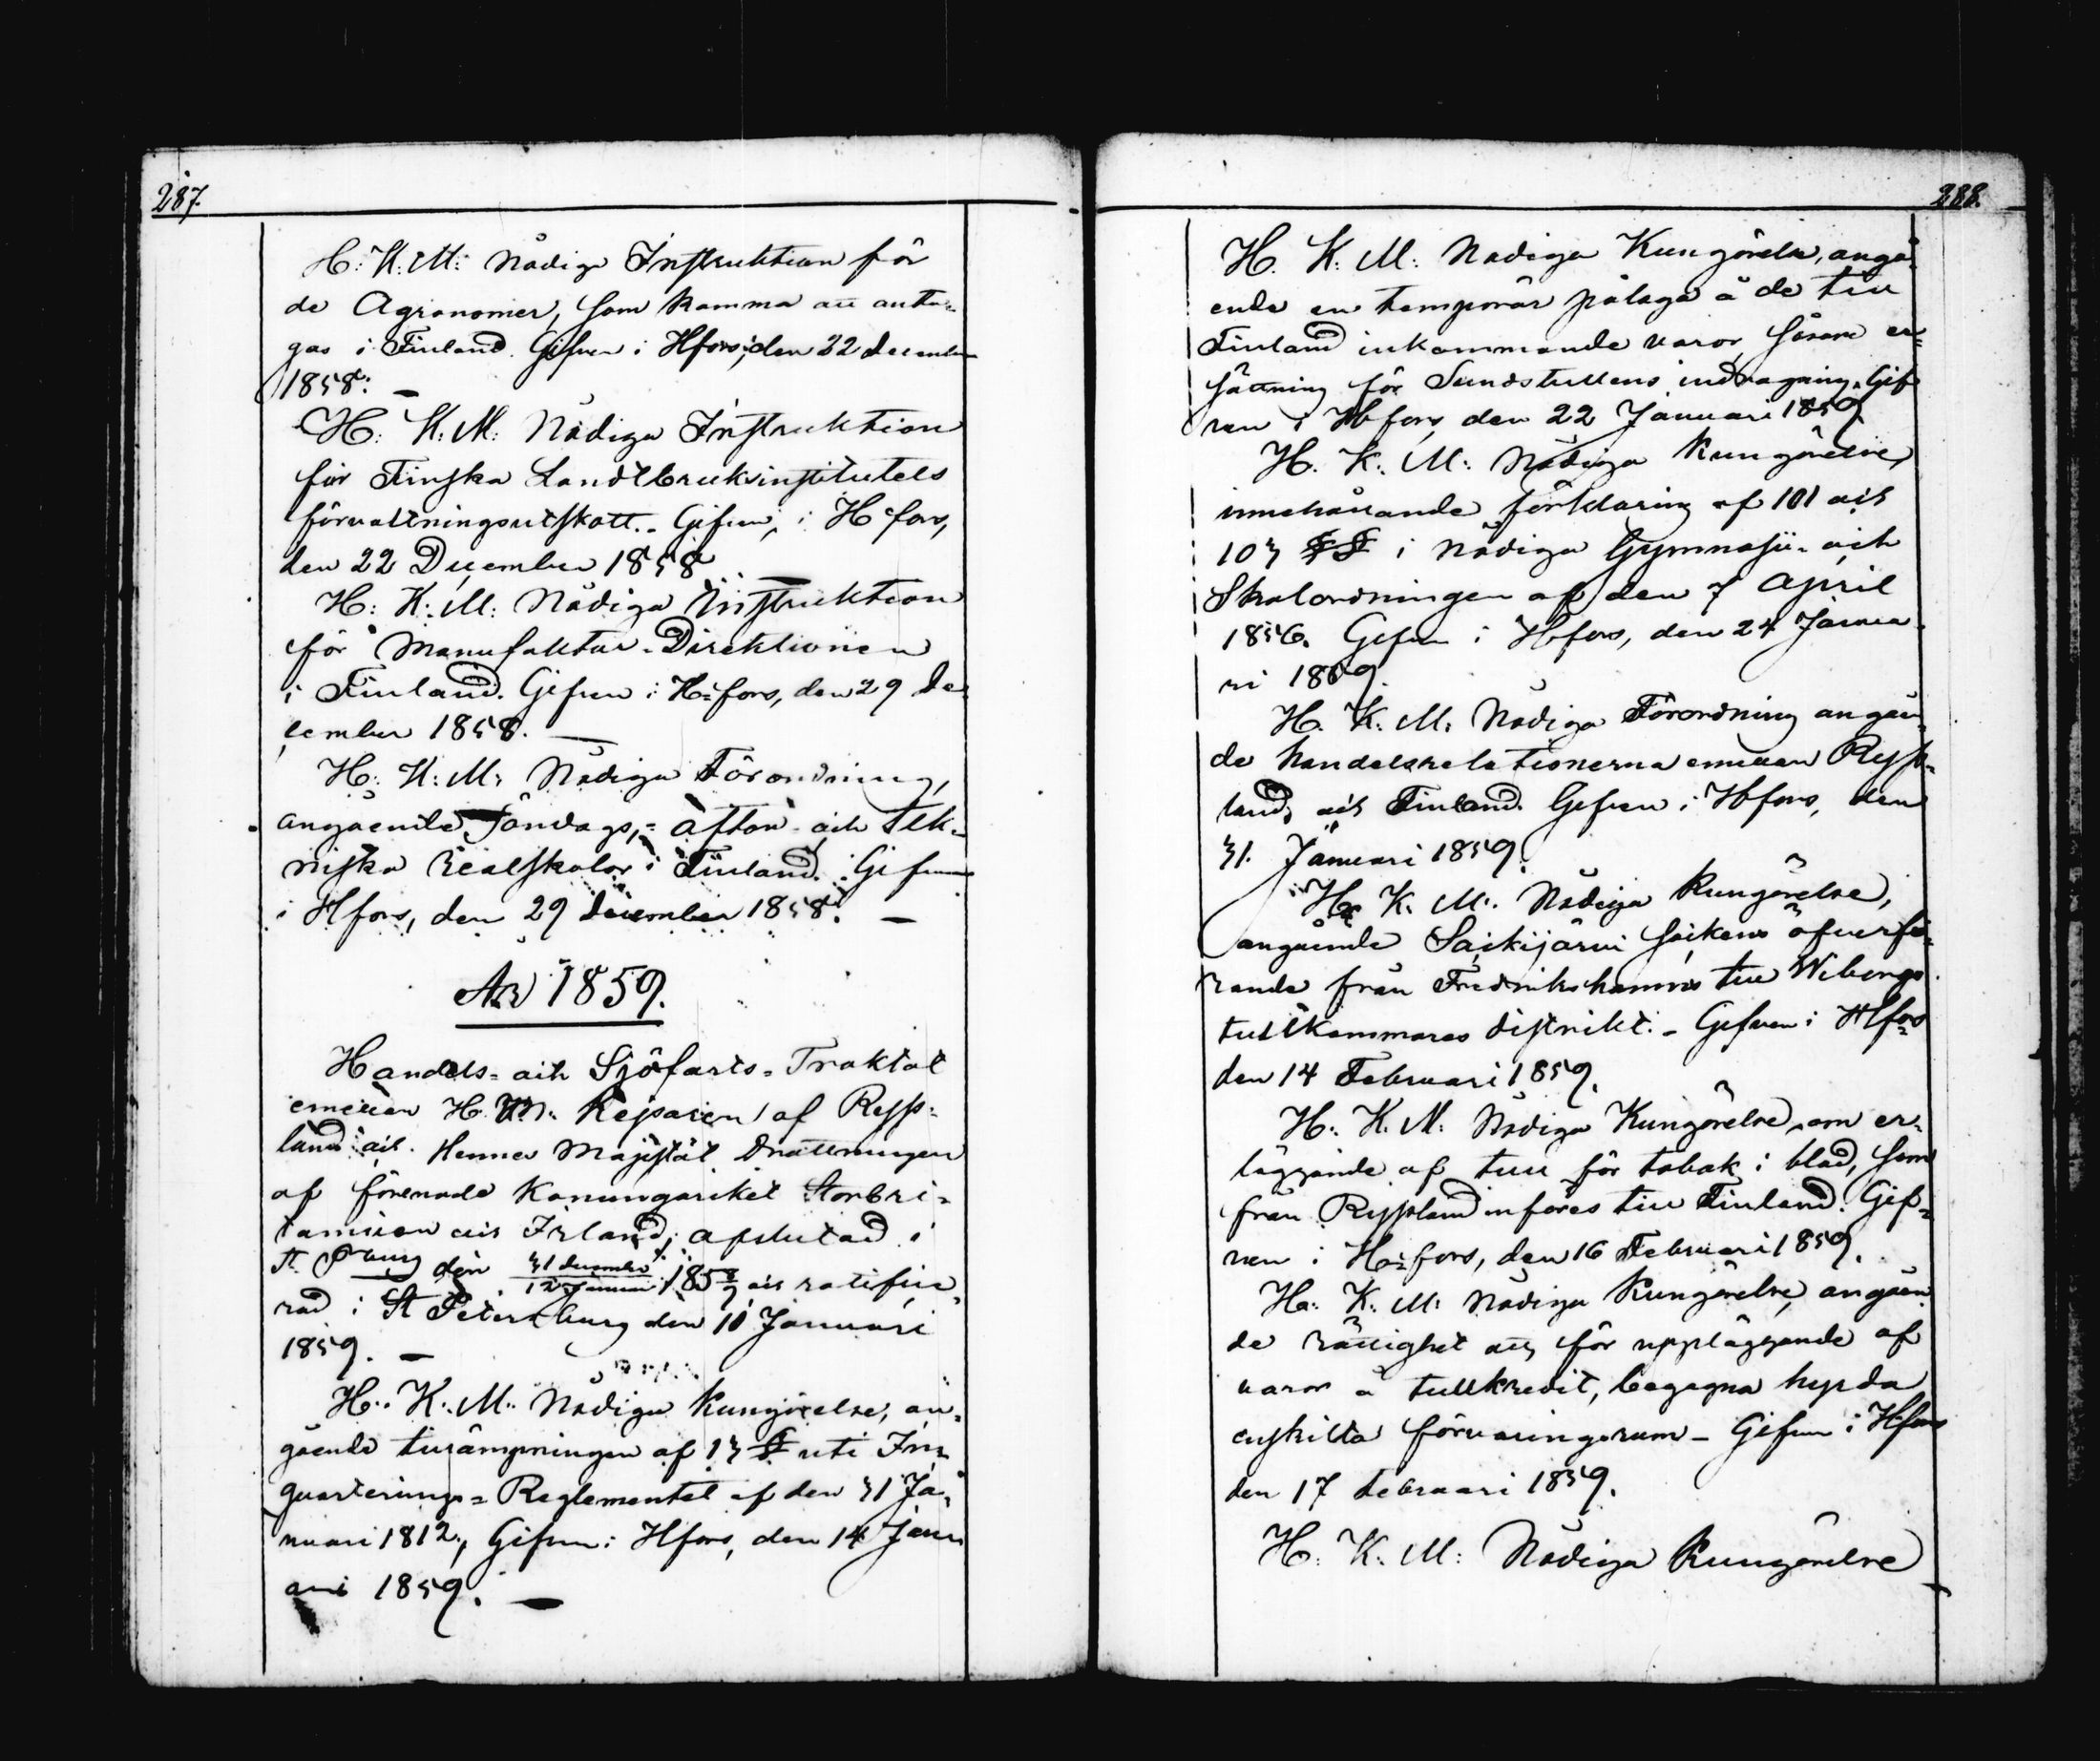 287.
H: K: M: Nådiga Instruktion för
de Agronomer, som komma att anta-
gas i Finland. Gifven i Hfors, den 22 December
1858. —
H: K: M: Nådiga Instruktion
för Finska Landtbruksinstitutets
förvaltningsutskott. - Gifven, i H:fors,
den 22 December 1858. —
H: K: M: Nådiga Instruktion
för Manufaktur-Direktionen
i Finland. Gifven i H:fors, den 29 De-
cember 1858. —
H: K: M: Nådiga Förordning,
angående Söndags,- Afton- och Tek-
niska realskolor i Finland. Gifven
i Hfors, den 29 December 1858. —
År 1859.
Handels- och Sjöfarts-Traktat
emellan H. M. Kejsaren af Ryss-
land och Hennes Majestät Drottningen
af förenade Konungariket Storbri-
tannien och Irland, afslutad i
St. P:burg den 31 December/12 Januari 1858/9 och ratifice-
rad i St Petersburg den 10 Januari
1859. —
H: K: M: Nådiga Kungörelse, an-
gående tillämpningen af 13 § uti In-
quarterings-Reglementet af den 31 Ja-
nuari 1812, Gifven i Hfors, den 14 Janu
ari 1859. —
288.
H. K: M: Nådiga Kungörelse, angå-
ende en temporär pålaga å de till
Finland inkommande varor, såsom er-
sättning för Sundstullens indragning. Gif
ven i Hfors, den 22 Januari 1859
H. K: M: Nådiga Kungörelse,
innehållande förklaring af 101 och
103 §§ i Nådiga Gymnasii- och
Skolordningen af den 7 April
1856. Gifven i Hfors, den 24 Janua-
ri 1859.
H. K: M: Nådiga Förordning angåen-
de handelsrelationerna emellan Ryss-
land och Finland. Gifven i Hfors, den
31. Januari 1859.
H: K: M: Nådiga Kungörelse,
angående Säckijärvi Sockens öfverfö-
rande från Fredrikshamns till Wiborgs
tullkammares distrikt. - Gifven i Hfors
den 14 Februari 1859.
H: K. M: Nådiga Kungörelse, om er-
läggande af tull för tobak i blad, som
från Ryssland införes till Finland. Gif-
ven i H:fors, den 16 Februari 1859.
H: K: M: Nådiga Kungörelse, angåen
de rättighet att, för uppläggande af
varor å tullkredit, begagna hyrda
enskilda förvaringsrum - Gifven i Hfors
den 17 Februari 1859.
H: K: M: Nådiga Kungörelse